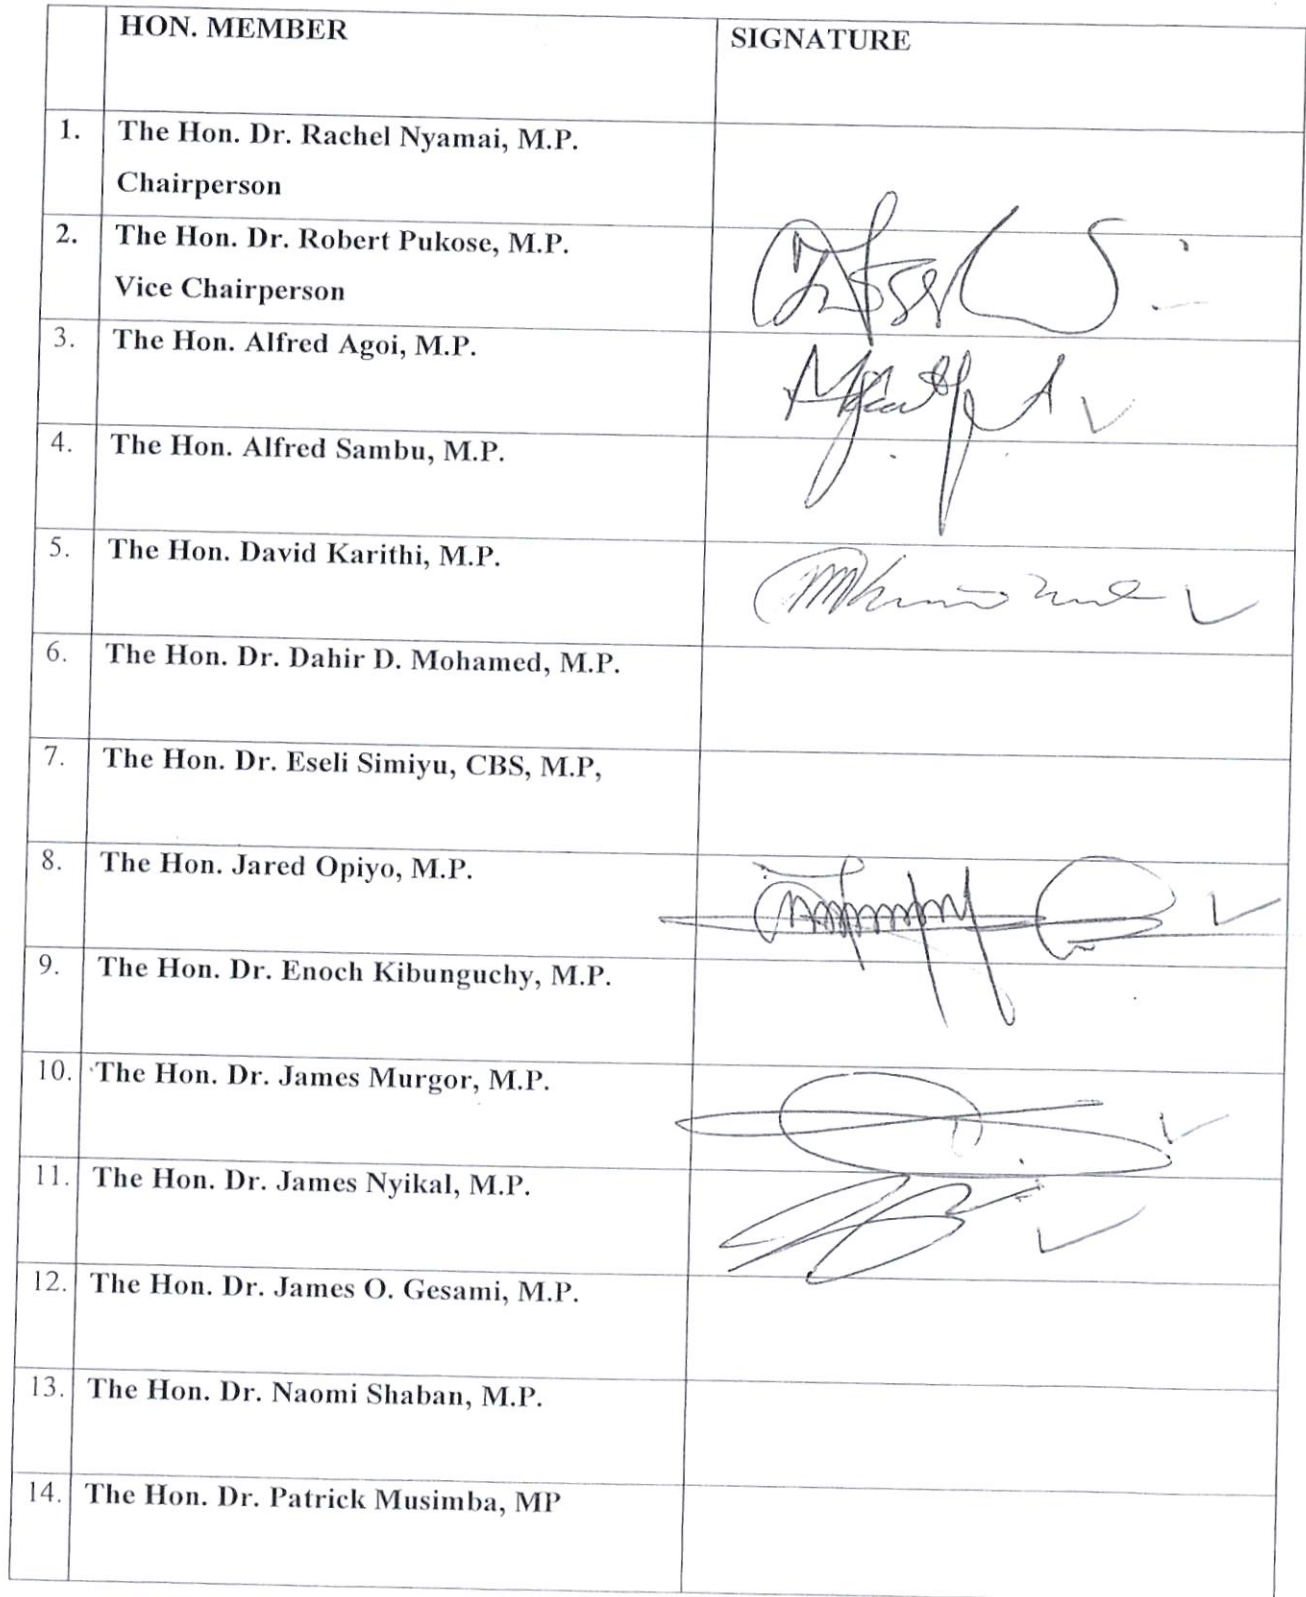 HON. MEMBER SIGNATURE
1. The Hon. Dr. Rachel Nyamai, M.P.
Chairperson
2. The Hon. Dr. Robert Pukose, M.P.
Vice Chairperson
3. The Hon. Alfred Agoi, M.P.
4. The Hon. Alfred Sambu, M.P.
5. The Hon. David Karithi, M.P.
6. The Hon. Dr. Dahir D. Mohamed, M.P.
7. The Hon. Dr. Eseli Simiyu, CBS, M.P,
8. The Hon. Jared Opiyo, M.P.
9. The Hon. Dr. Enoch Kibunguchy, M.P.
10. The Hon. Dr. James Murgor, M.P.
11. The Hon. Dr. James Nyikal, M.P.
12. The Hon. Dr. James O. Gesami, M.P.
13. The Hon. Dr. Naomi Shaban, M.P.
14. The Hon. Dr. Patrick Musimba, MP